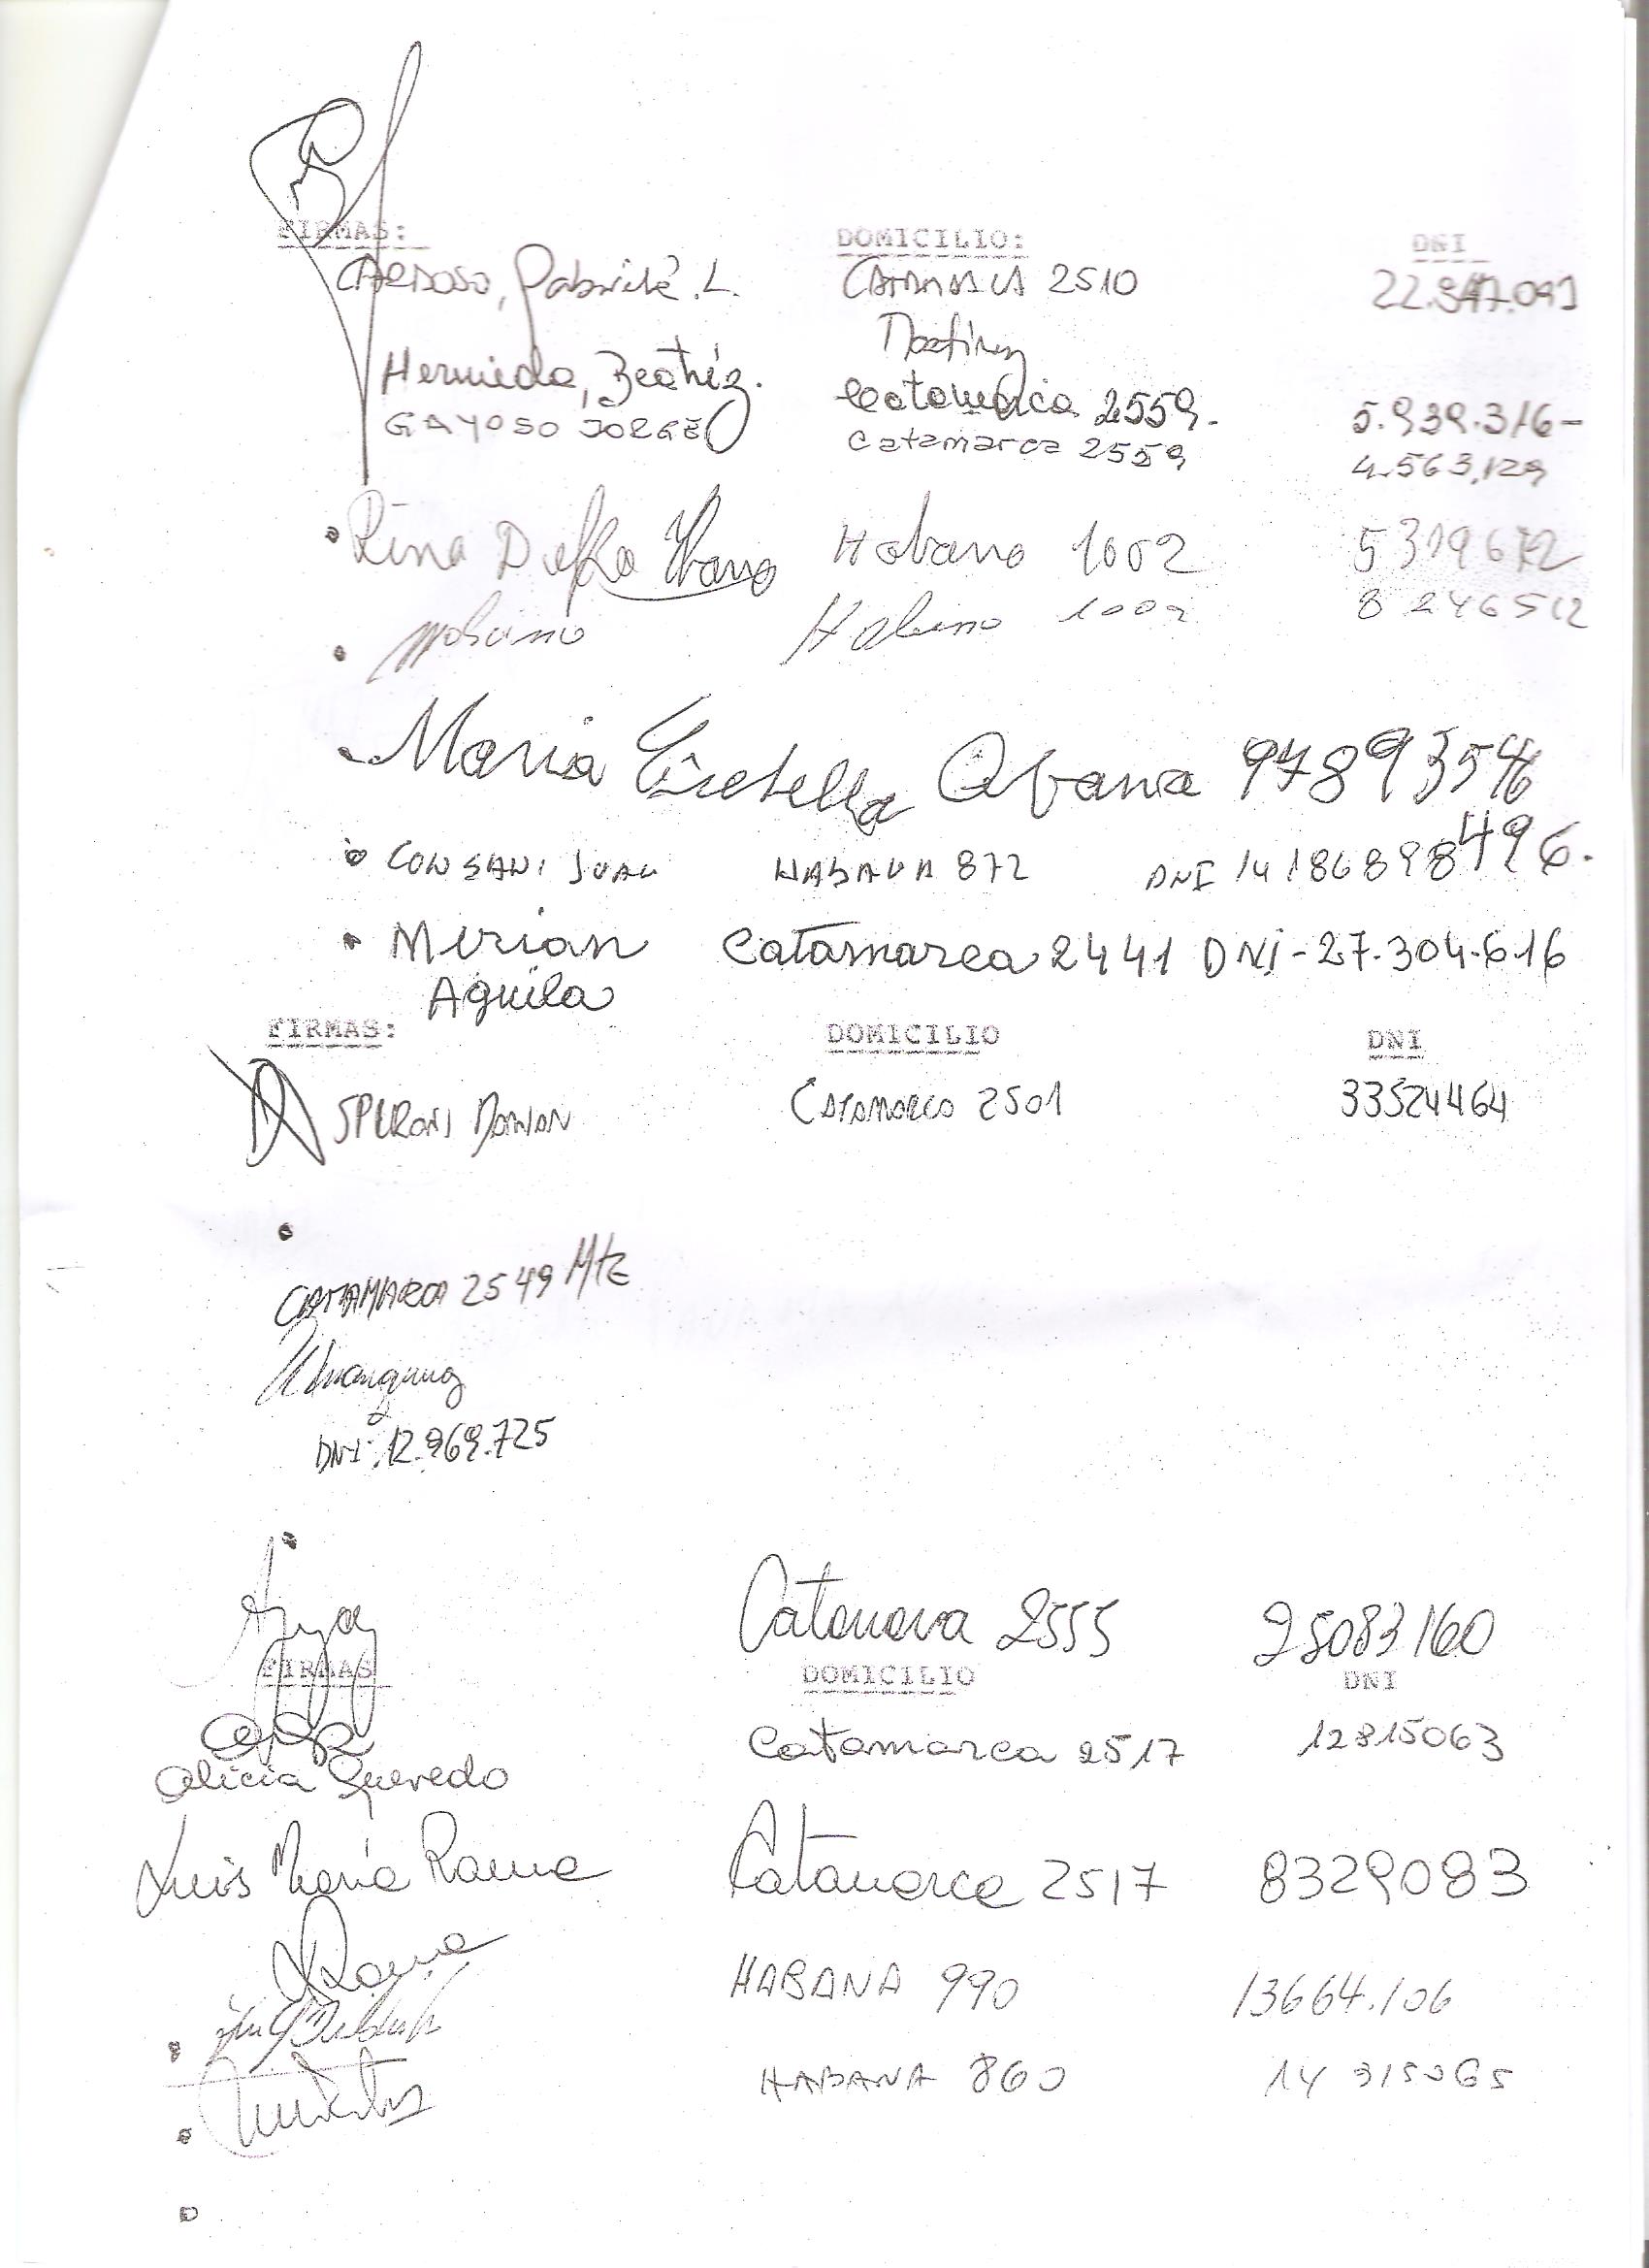 FIRMAS: DOMICILIO: DNI
CARDOSO, Gabriel .L. CATAMARCA 2510
Hermida, Beatriz. Catamarca 2559. 5.939.316-
GAYOSO JORGE Catamarca 2559 4.563,129
Rina Habana 1002 5319672
1002 8246512
Maria Estella 9789354
CONSANI JUAN HABANA 872 DNI 14186898 496.
Mirian Catamarca 2441 DNI-27.304.616
Aguila
FIRMAS: DOMICILIO DNI
SPERONI Catamarca 2501 33524464
CATAMARCA 2549 Mtz
DNI: 12.969.725
2555 25083160
FIRMAS DOMICILIO DNI
Catamarca 2517 12815063
Alicia Quevedo
Luis María Rama Catamarca 2517 8329083
Rama
HABANA 990 13664.106
HABANA 860 14 315065